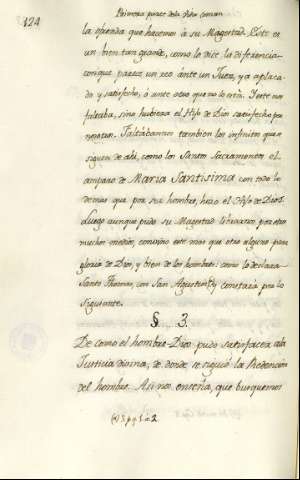 124
Primera parte dela Vida comun
la ofensa que hacemos à su Magestad. Este es
un bien tan grande, como lo dice la diferencia
con que parece un reo ante un Juez, ya aplaca-
do y satisfecho, ò ante otro que no lo està. Y este nos
faltaba, sino hubiera el Hijo de Dios satisfecho por
nosotros. Faltabannos tambien los infinitos que
siguen de ahi, como los Santos Sacramentos el
amparo de Maria Santisima con todo lo
demas que por su hombre, hizo el Hijo de Dios.
Luego aunque pudo su Magestad librarnos por otros
muchos medios, convino este mas que otro alguno para
gloria de Dios, y bien de los hombres: como lo declara
Santo Thomas, con San Agustin (*) y constarà por lo
siguiente.
§ 3.
De como el hombre-Dios pudo satisfacer a la
Justicia divina, de donde se siguiò la Redencion
del hombre. Asi nos enseña, que busquemos
(*) 3. p. q. 1. a 2.